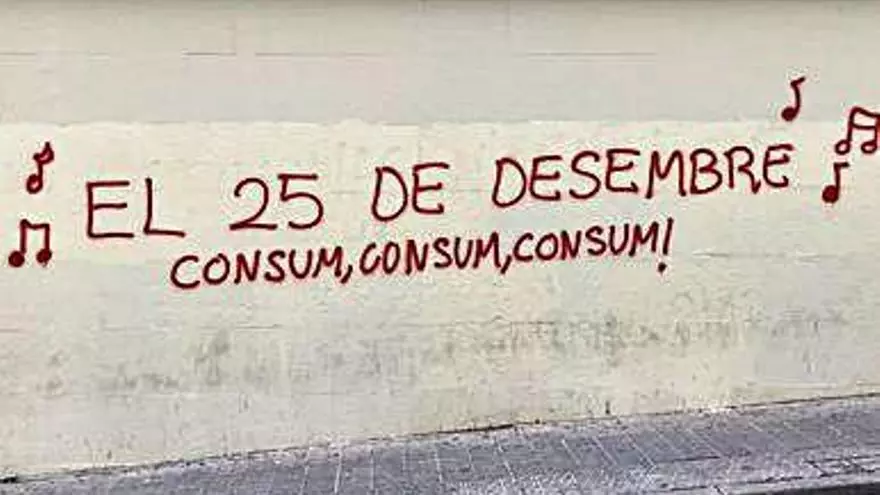 EL 25 DE DESEMBRE
CONSUM, CONSUM, CONSUM!